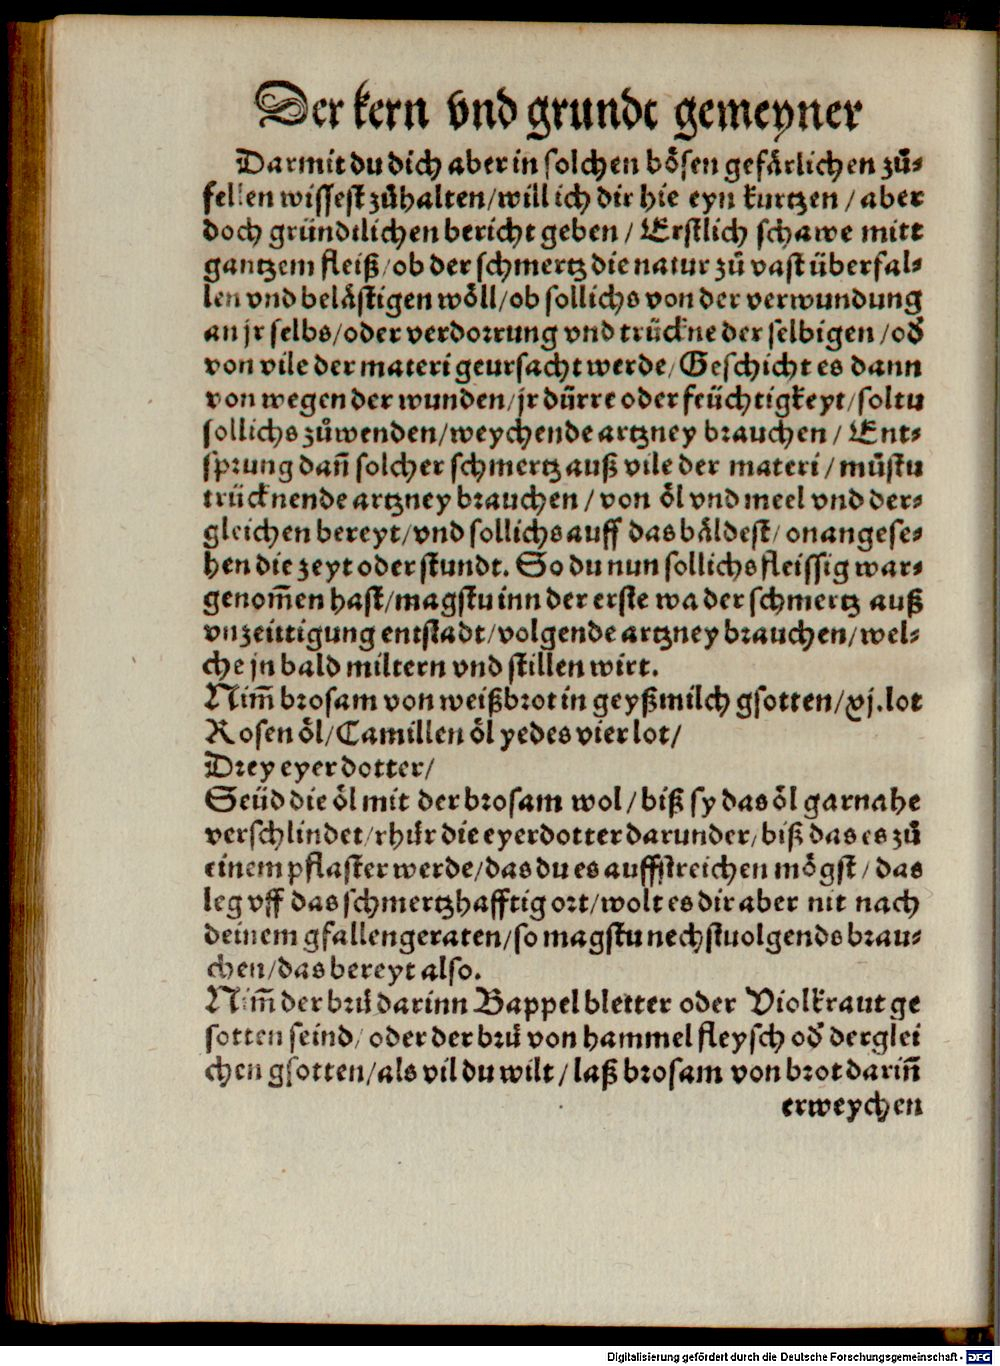 Der kern vnd grundt gemeyner
Darmit du dich aber in solchen bösen gefärlichen zů-
fellen wissest zůhalten/will ich dir hie eyn kurtzen / aber
doch gründtlichen bericht geben / Erstlich schawe mitt
gantzem fleiß/ob der schmertz die natur zů vast überfal-
len vnd belästigen wöll/ob sollichs von der verwundung
an jr selbs/oder verdorrung vnd trückne der selbigen /od̕
von vile der materi geursacht werde/Geschicht es dann
von wegen der wunden/jr dürre oder feüchtigkeyt/soltu
sollichs zůwenden/weychende artzney brauchen / Ent-
sprung dañ solcher schmertz auß vile der materi / můstu
trücknende artzney brauchen / von öl vnd meel vnd der-
gleichen bereyt/vnd sollichs auff das bäldest/ onangese-
hen die zeyt oder stundt. So du nun sollichs fleissig war-
genom̄en hast/magstu inn der erste wa der schmertz auß
vnzeittigung entstadt/volgende artzney brauchen/wel-
che jn bald miltern vnd stillen wirt.
Nim̄ brosam von weißbrot in geyßmilch gsotten/xj.lot
Rosen öl/Camillen öl yedes vier lot/
Drey eyer dotter/
Seüd die öl mit der brosam wol / biß sy das öl garnahe
verschlindet/rhůr die eyerdotter darunder/biß das es zů
einem pflaster werde/das du es auffstreichen mögst / das
leg vff das schmertzhafftig ort/wolt es dir aber nit nach
deinem gfallen geraten/so magstu nechstuolgends brau-
chen/das bereyt also.
Nim̄ der brů darinn Bappel bletter oder Violkraut ge
sotten seind/ oder der brů von hammel fleysch od̕ derglei
chen gsotten/als vil du wilt / laß brosam von brot dariñ
erweychen
Digitalisierung gefördert durch die Deutsche Forschungsgemeinschaft - DFG